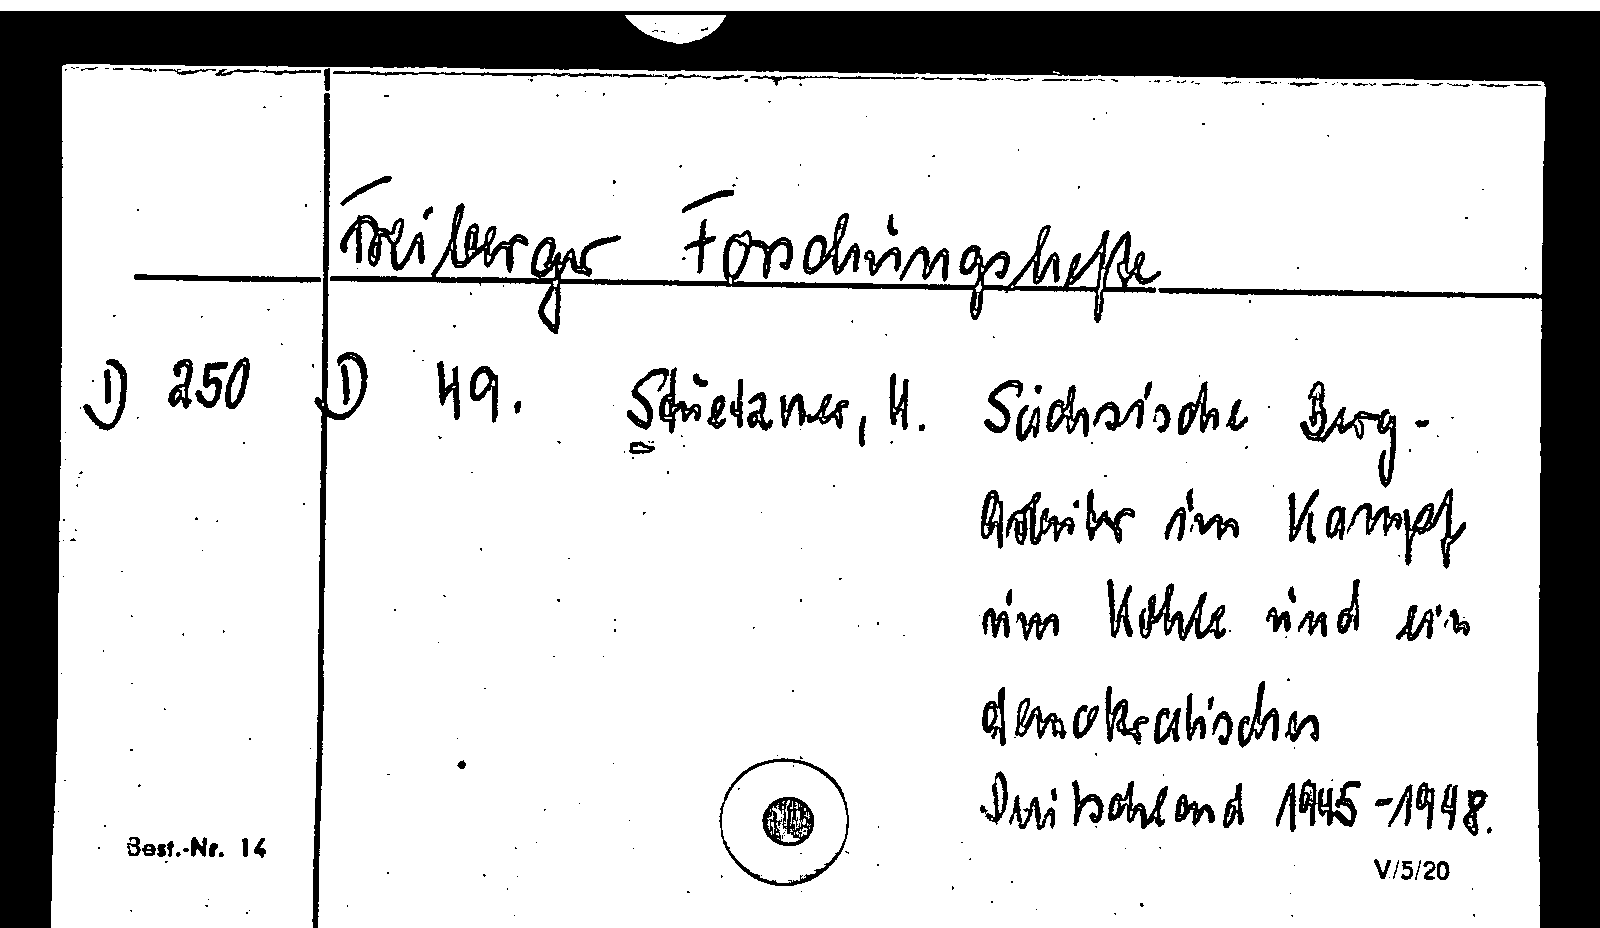 Freiberger Forschungshefte
D 250 D 49. Stuetzner, H. Sächsische Berg-
arbeiter im Kampf
um Kohle und ein
demokratisches
Deutschland 1945-1948.
Best.-Nr. 14
V/5/20